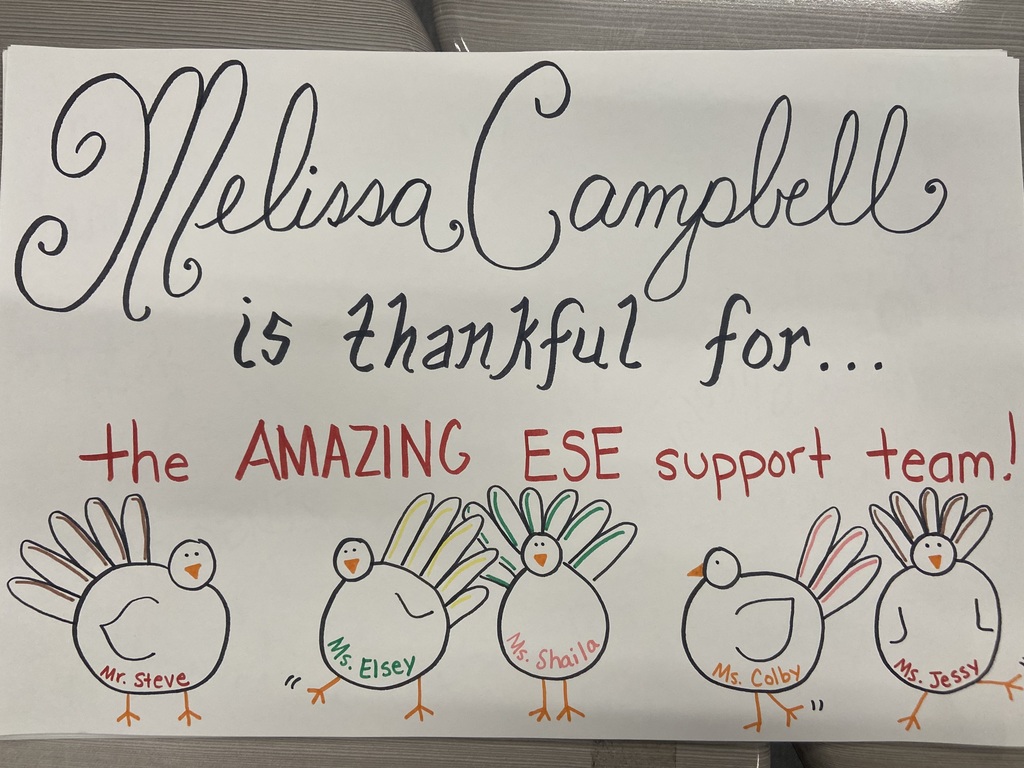 Melissa Campbell
is thankful for...
the AMAZING ESE support team!
Mr. Steve
Ms. Elsey
Ms. Shaila
Ms. Colby
Ms. Jessy